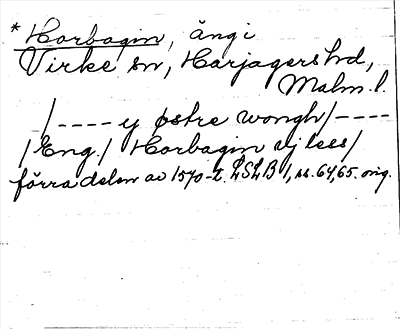 * Horbagin, äng i
Virke sn, Harjagers hd,
Malm. l.
/---- y østre wongh/----
/Eng./ Horbagin vj less/
förra delen av 1570-t. LSLB 1, ss. 64, 65. orig.